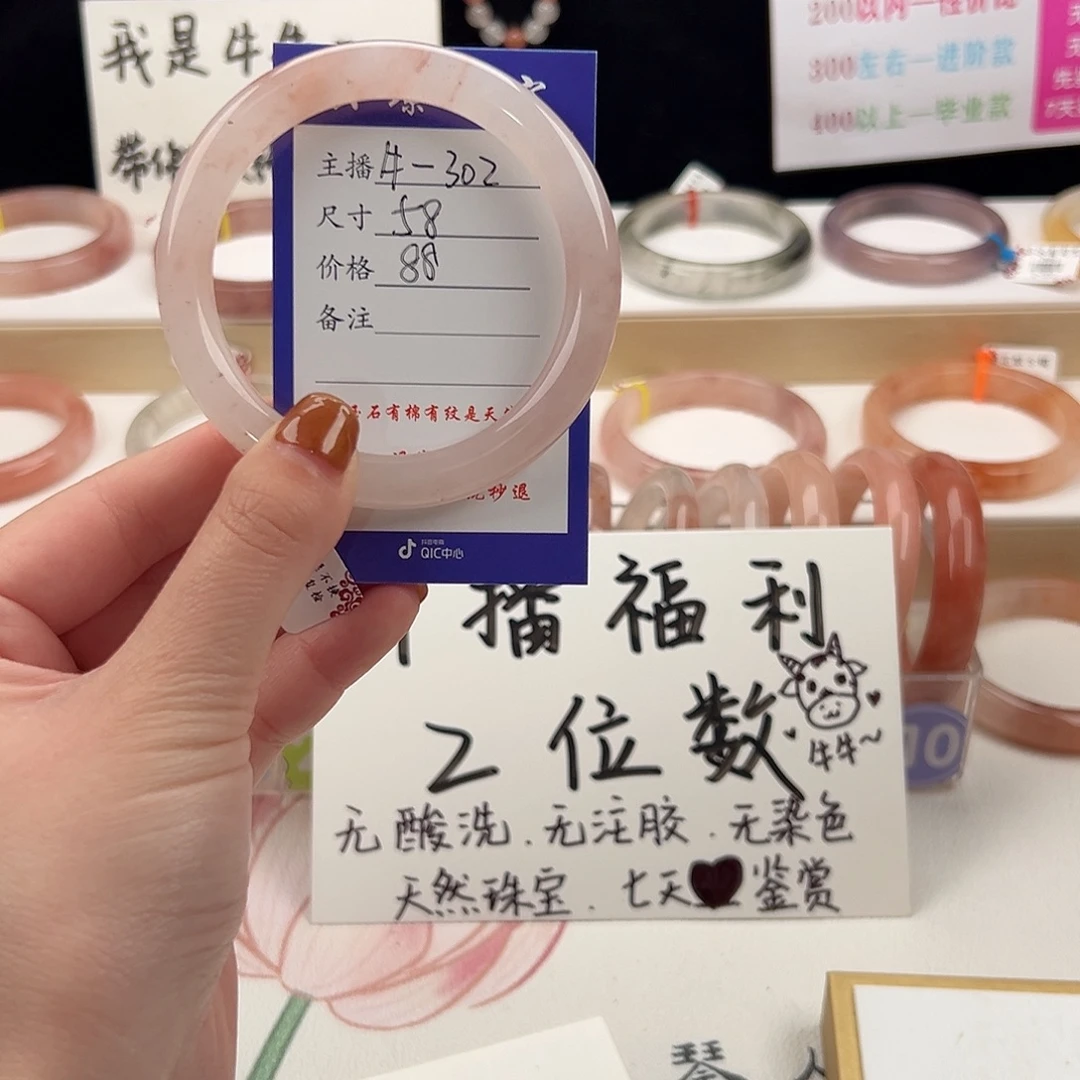 我是牛牛
带你
200以内一性价比
300左右一进阶款
400以上一毕业款
主播 牛-302
尺寸 58
价格 88
备注
玉石有棉有纹是天
秒退
抖音电商
QIC中心
播福利
2位数
牛牛~
无酸洗.无注胶.无染色
天然珠宝.七天 鉴赏
10
琴